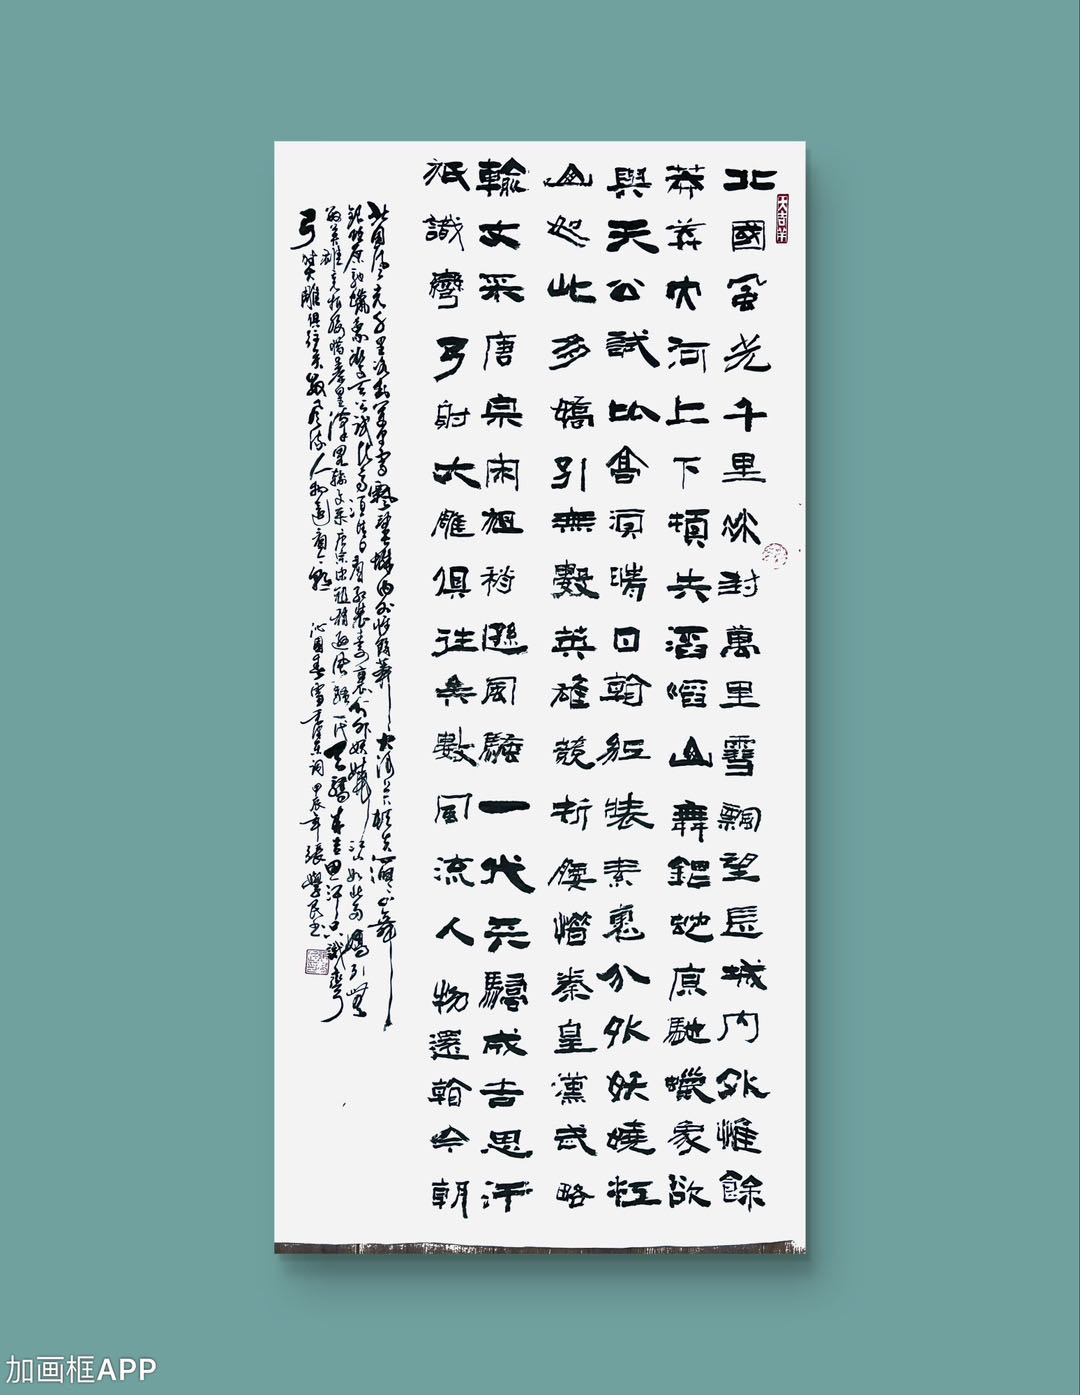 大吉羊
北國風光千里冰封萬里雪飄望長城內外惟餘
莽莽大河上下頓失滔滔山舞銀蛇原馳蠟象欲
與天公試比高須晴日看紅裝素裹分外妖嬈江
山如此多嬌引無數英雄競折腰惜秦皇漢武略
輸文采唐宗宋祖稍遜風騷一代天驕成吉思汗
祇識彎弓射大雕俱往矣數風流人物還看今朝
北國風光千里冰封萬里雪飄望長城內外惟餘莽莽大河上下頓失滔滔山舞
銀蛇原馳蠟象欲與天公試比高須晴日看紅裝素裹分外妖嬈江山如此多嬌引無
數英雄競折腰惜秦皇漢武略輸文采唐宗宋祖稍遜風騷一代天驕成吉思汗只識彎
弓射大雕俱往矣數風流人物還看今朝 沁園春雪毛澤東詞甲辰年張學民書
加画框APP